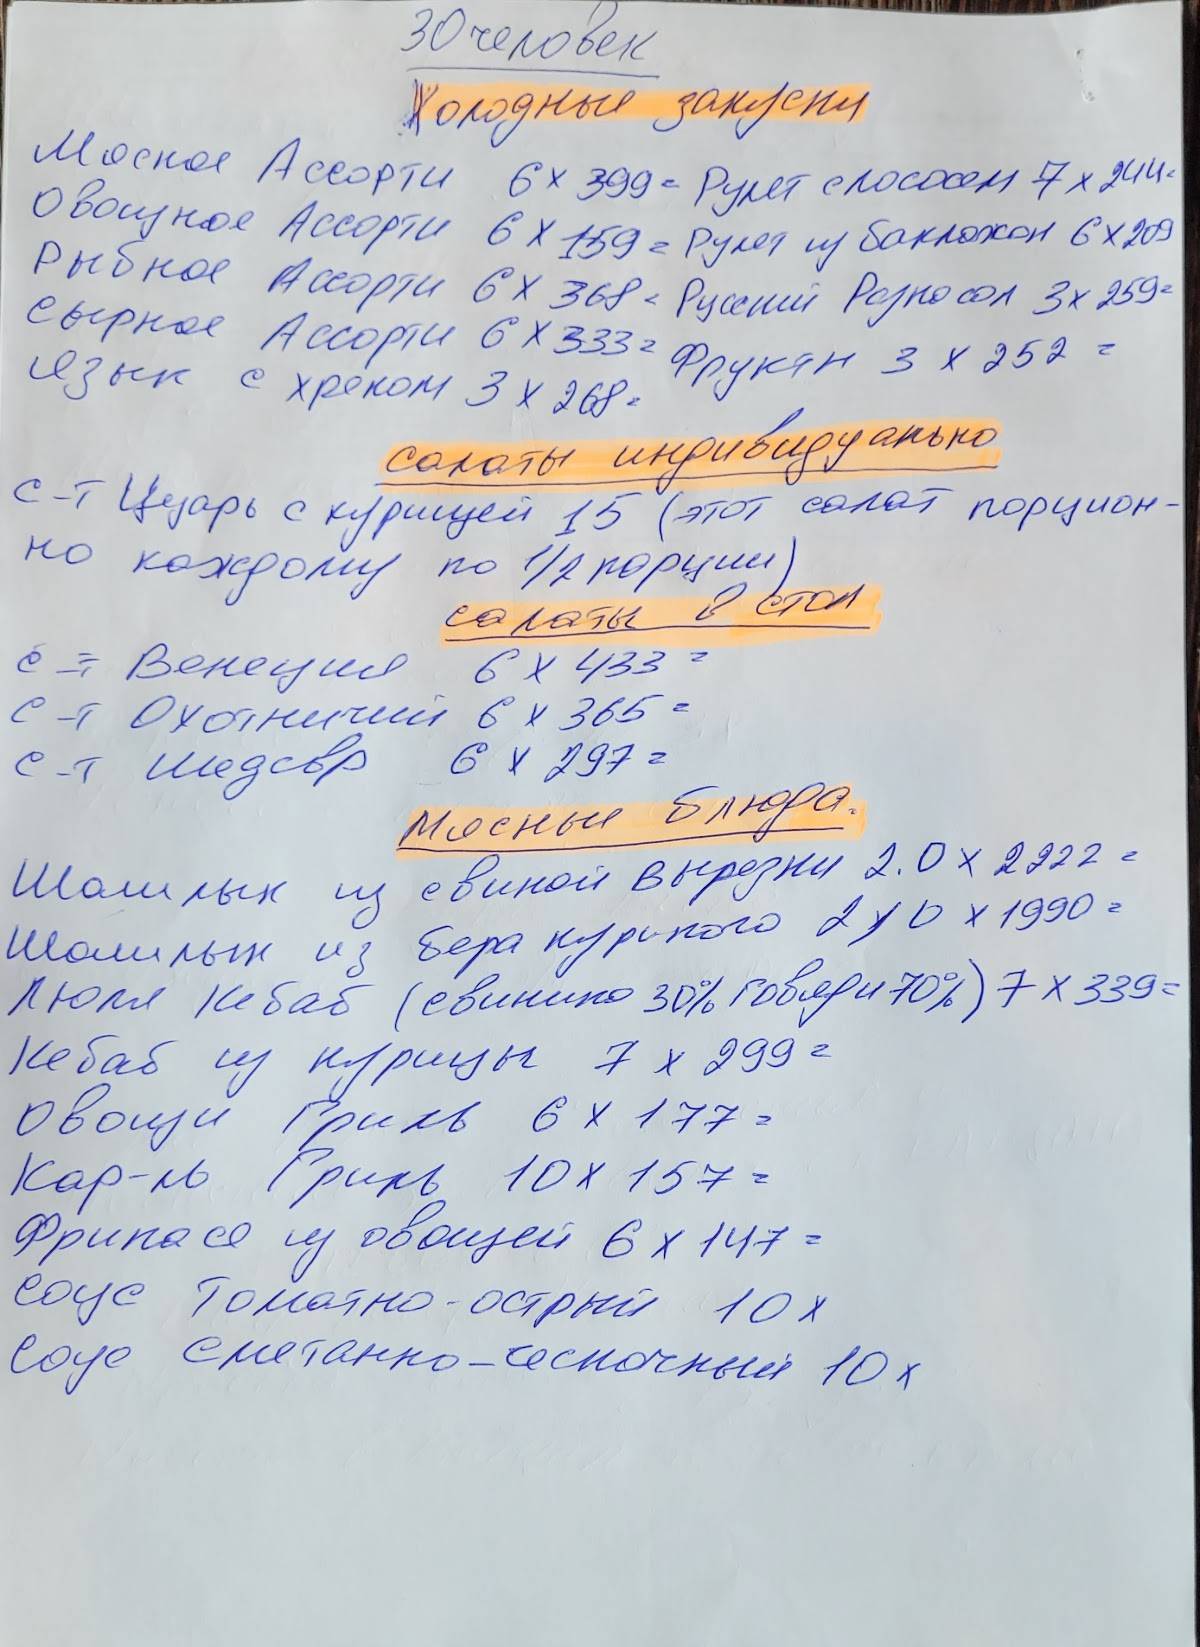 30 человек
Холодные закуски
Мясное Ассорти 6 х 399= Рулет с лососем 7 х 244=
Овощное Ассорти 6 х 159= Рулет из баклажан 6 х 209
Рыбное Ассорти 6 х 368= Русский Разносол 3 х 259=
Сырное Ассорти 6 х 333= Фрукты 3 х 252=
Язык с хреном 3 х 268=
Салаты индивидуально
С-т Цезарь с курицей 15 (этот салат порцион-
но каждому по 1/2 порции)
Салаты в стол
С-т Венеция 6 х 433=
С-т Охотничий 6 х 365=
С-т Шедевр 6 х 297=
Мясные блюда.
Шашлык из свиной вырезки 2.0 х 2222=
Шашлык из бедра куриного 2,0 х 1990=
Люля Кебаб (свинина 30% говяди 70%) 7 х 339=
Кебаб из курицы 7 х 299=
Овощи Гриль 6 х 177=
Кар-ль Гриль 10 х 157=
Фрикасе из овощей 6 х 147=
Соус Томатно-острый 10 х
Соус Сметанно-чесночный 10 х